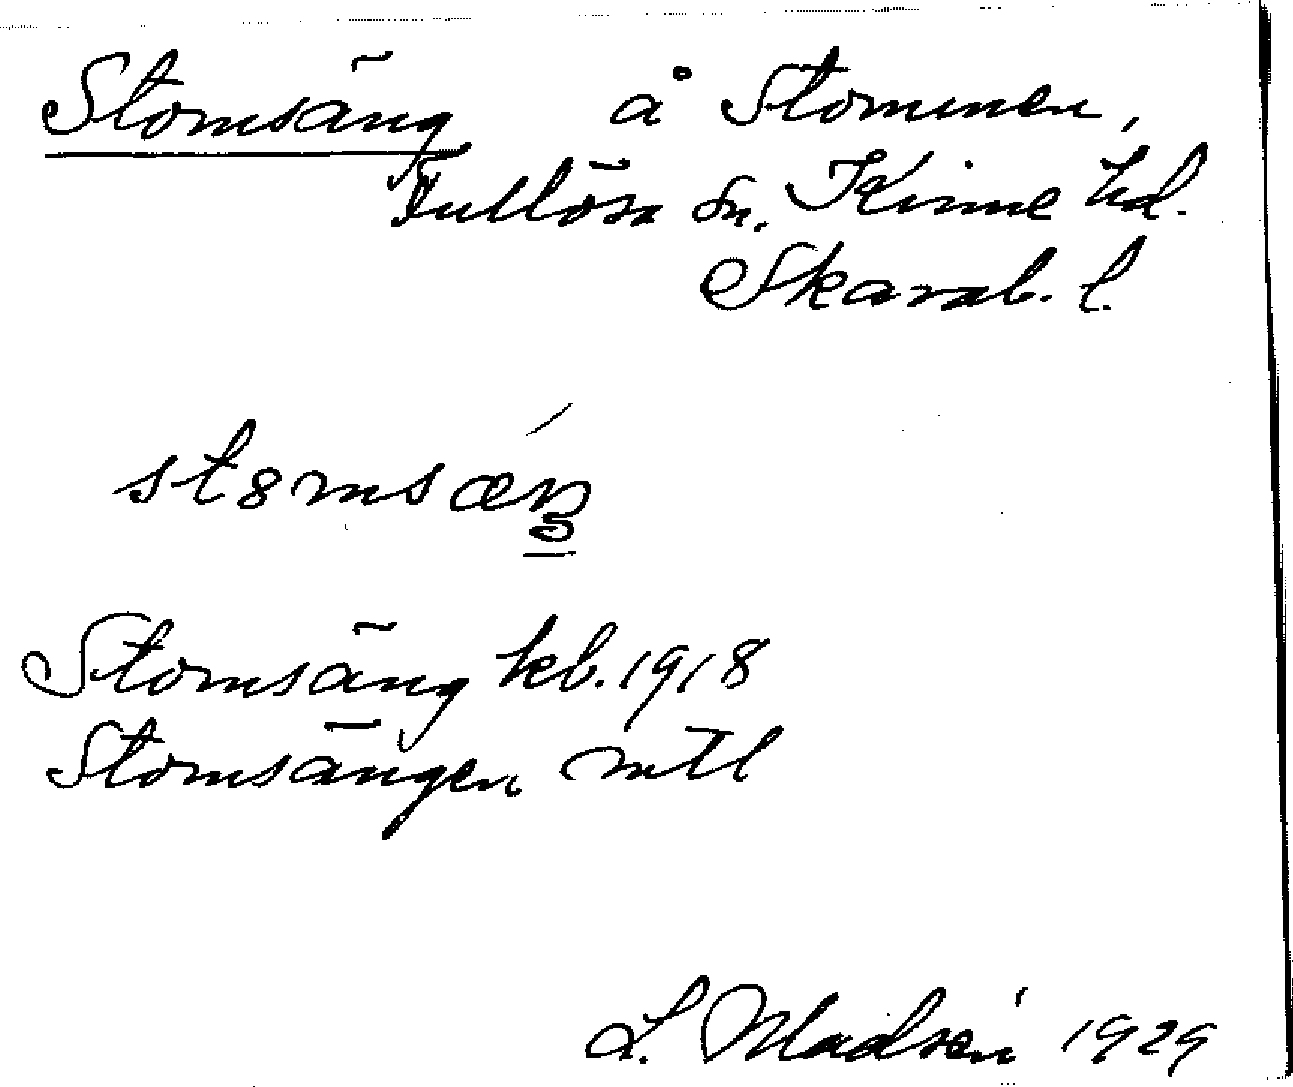 Stomsäng å Stommen,
Fullösa sn. Kinne hd.
Skarab. l.
st8msæŋ
Stomsäng kb. 1918
Stomsängen mtl
L. Madsén 1929